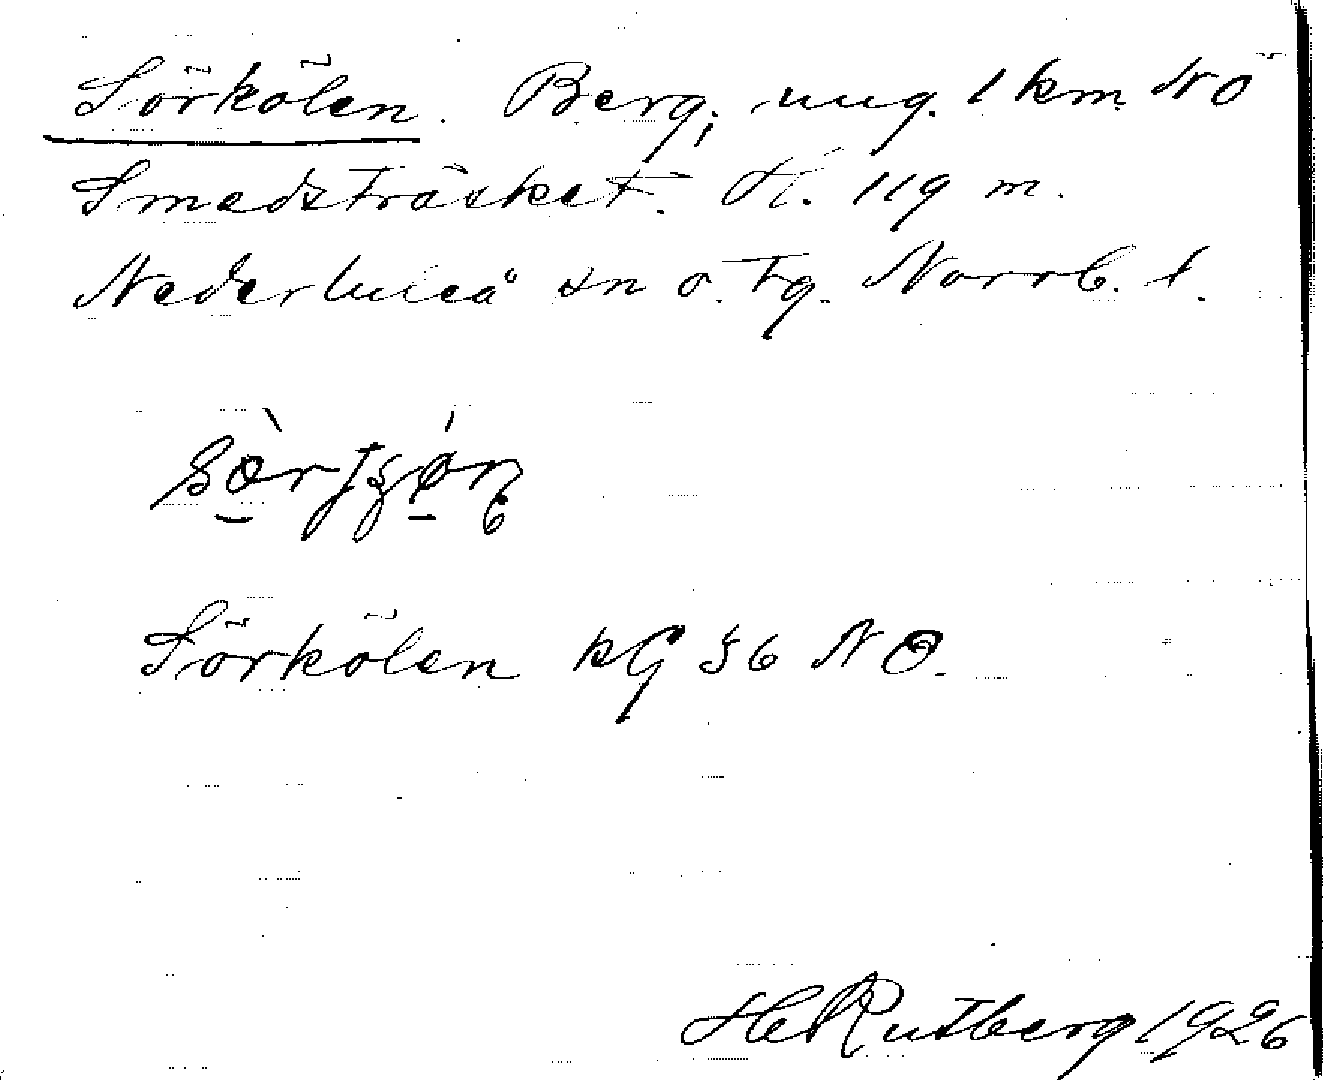 Sörkölen. Berg, ung. 1 km NÖ
Smedsträsket. H. 119 m.
Nederluleå sn o. tg. Norrb. l.
Sörkölen kG 36 NO.
HRutberg 1926